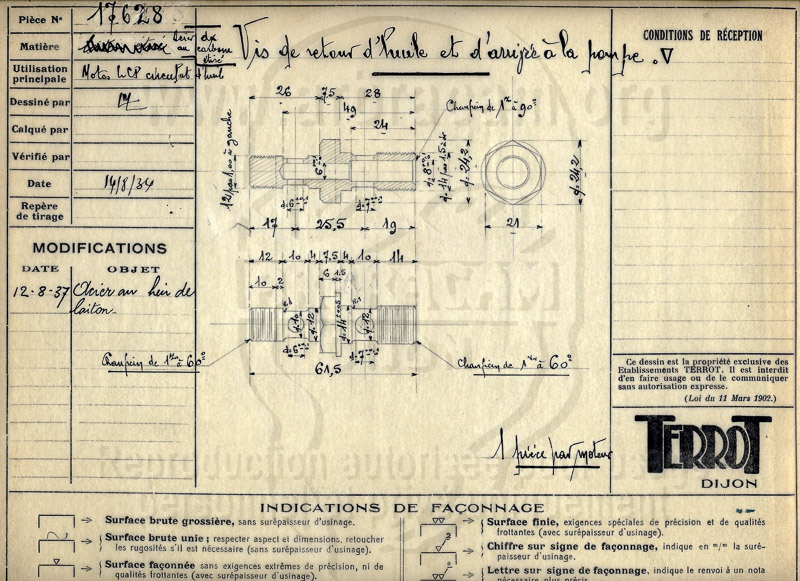 Pièce N° 17628
Matière Acier au carbone étiré
Utilisation principale Motos LCP circuit d'huile
Dessiné par
Calqué par
Vérifié par
Date 14/8/34
Repère de tirage
MODIFICATIONS
DATE OBJET
12-8-37 Acier au lieu de
laiton.
Vis de retour d'huile et d'arrivée à la pompe. ∇
CONDITIONS DE RÉCEPTION
26 7,5 28
49
24
Chanfrein de 1 m/m à 90°
12 pas 1,00 à gauche
6
ø 24,2
ø 24,2
21
17 25,5 19
12 10 4 7,5 4 10 14
6 1,5
10 2
ø 10 ø 12 ø 14 ø 12
Chanfrein de 1 m/m à 60°
Chanfrein de 1 m/m à 60°
61,5
1 pièce par moteur
Ce dessin est la propriété exclusive des
Etablissements TERROT. Il est interdit
d'en faire usage ou de le communiquer
sans autorisation expresse.
(Loi du 11 Mars 1902.)
TERROT
DIJON
INDICATIONS DE FAÇONNAGE
Surface brute grossière, sans surépaisseur d'usinage.
Surface brute unie ; respecter aspect et dimensions, retoucher
les rugosités s'il est nécessaire (sans surépaisseur d'usinage).
Surface façonnée sans exigences extrêmes de précision, ni de
qualités frottantes (avec surépaisseur d'usinage).
Surface finie, exigences spéciales de précision et de qualités
frottantes (avec surépaisseur d'usinage).
Chiffre sur signe de façonnage, indique en m/m la surépaisseur
d'usinage.
Lettre sur signe de façonnage, indique le renvoi à un nota
nécessaire plus précis.